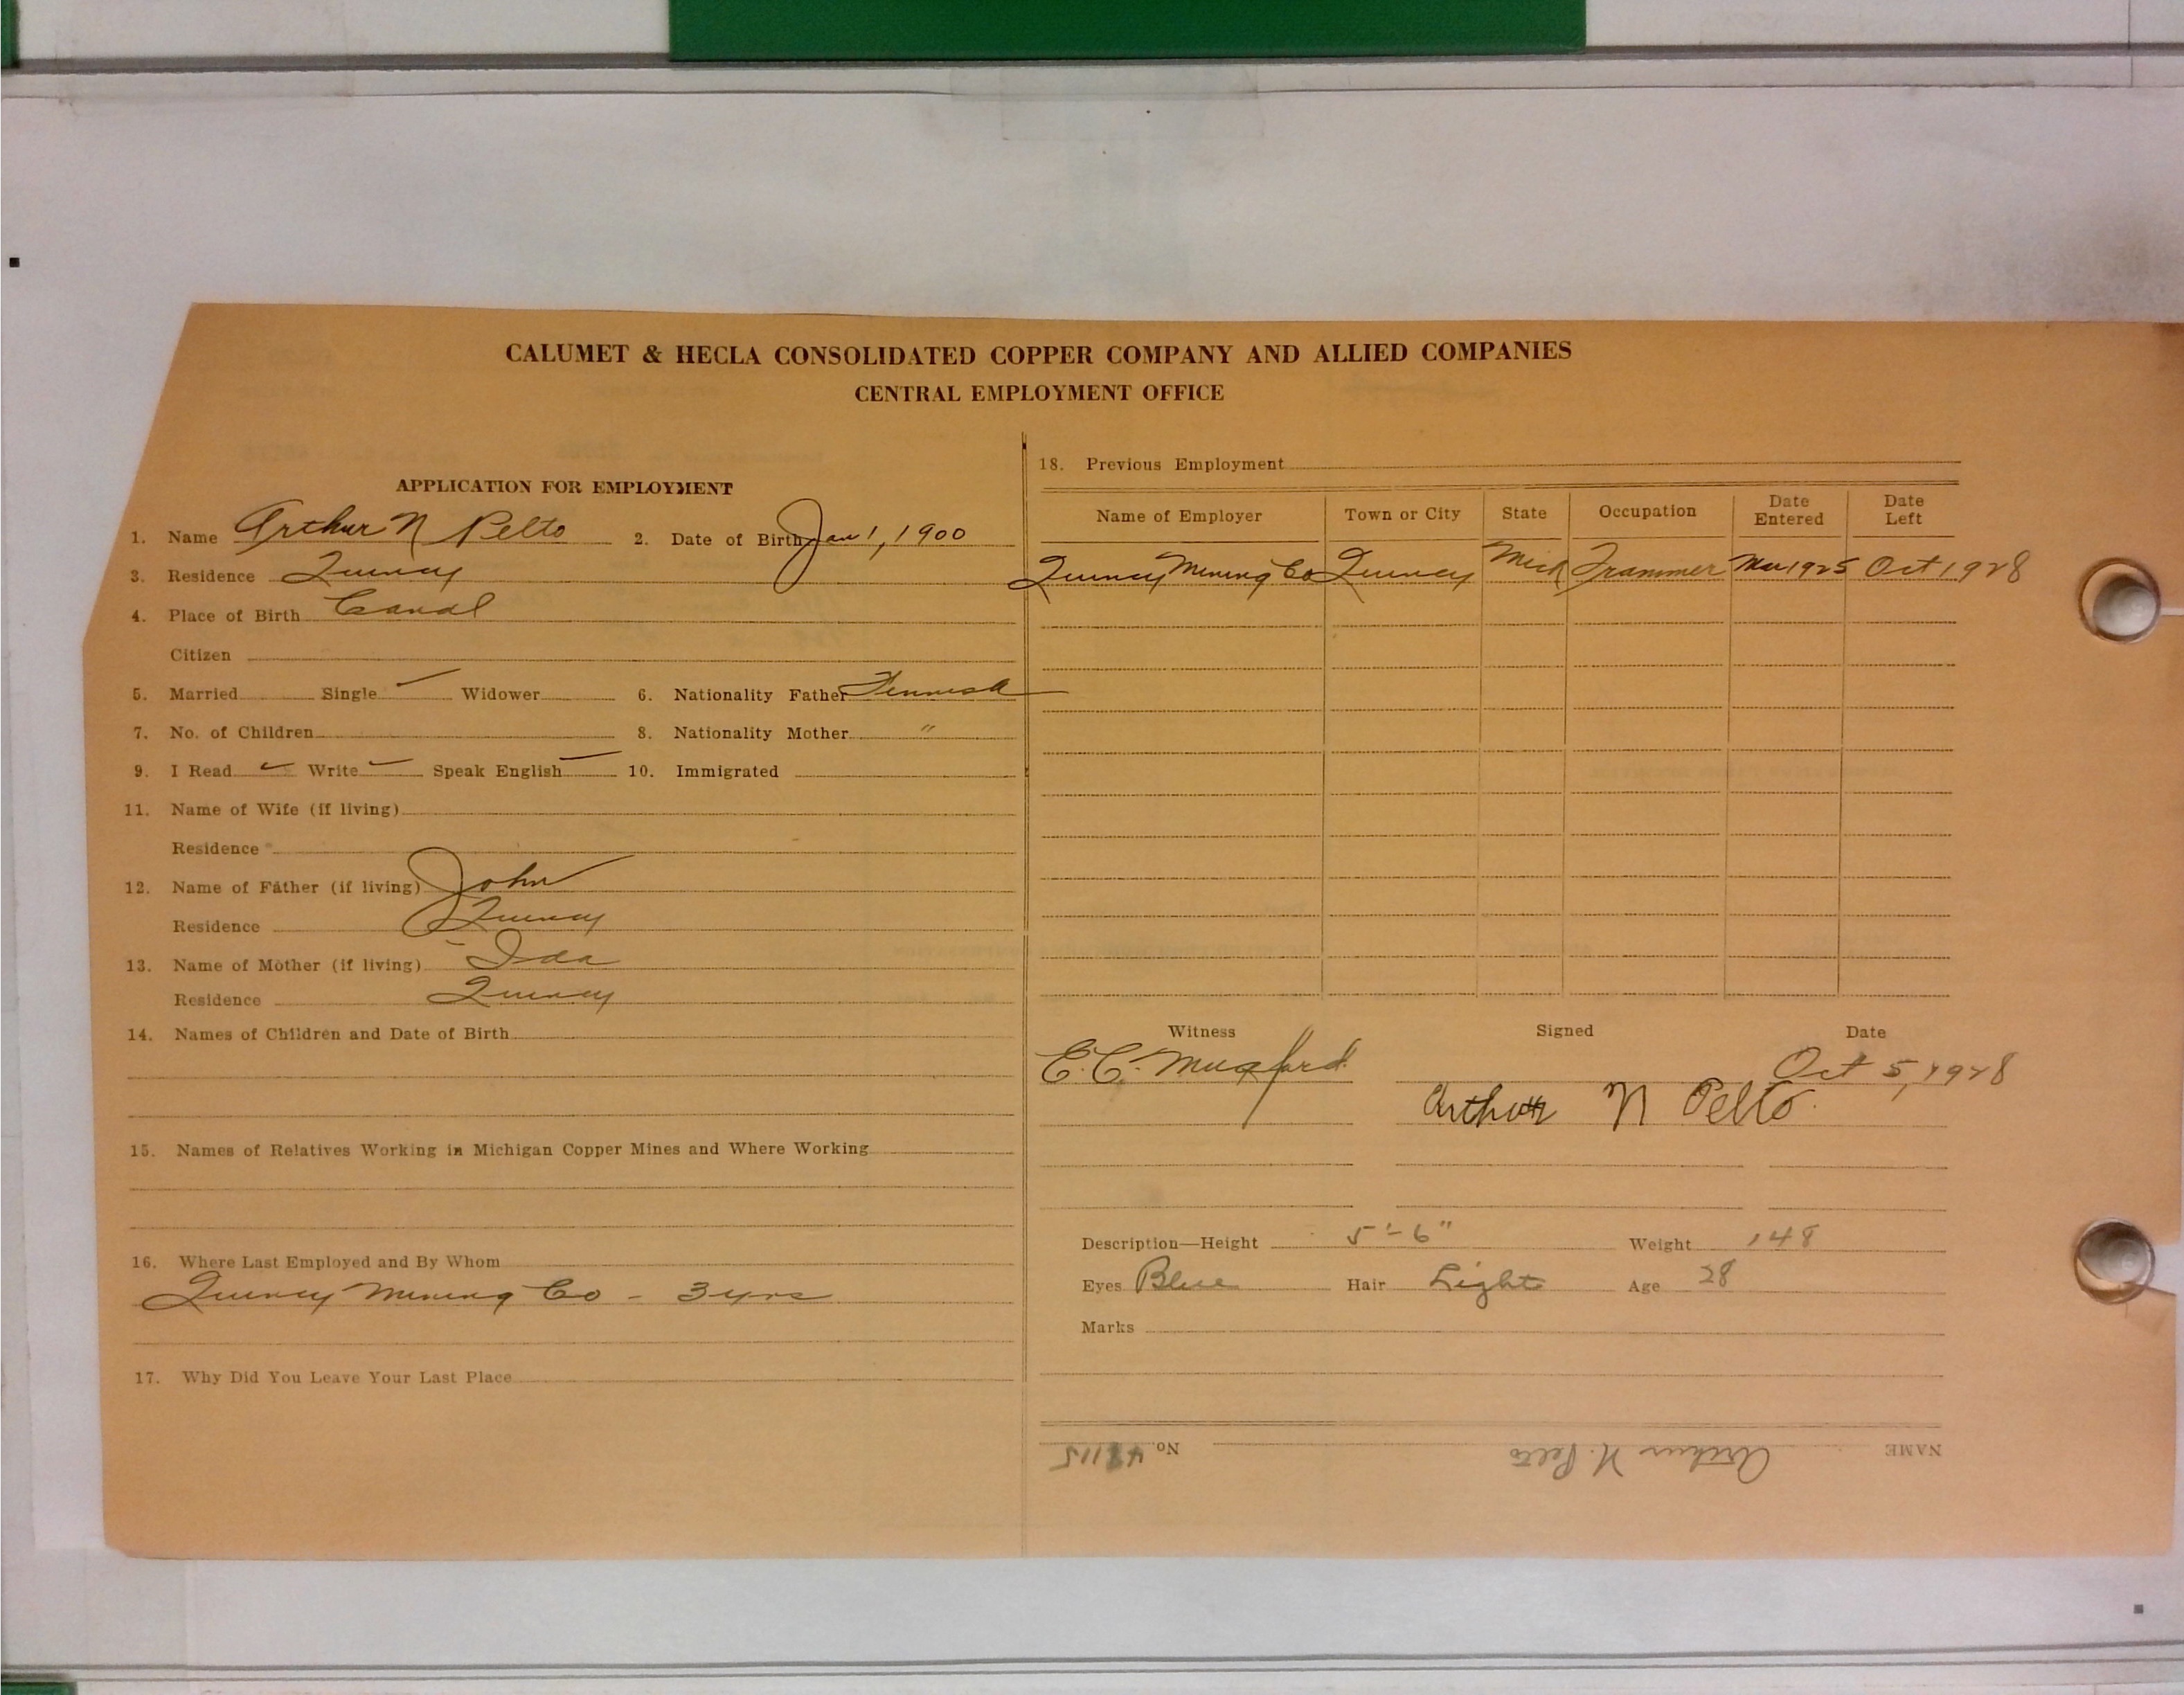 CALUMET & HECLA CONSOLIDATED COPPER COMPANY AND ALLIED COMPANIES
CENTRAL EMPLOYMENT OFFICE
APPLICATION FOR EMPLOYMENT
1. Name Arthur N Pelto 2. Date of Birth Jan 1, 1900
3. Residence Quincy
4. Place of Birth Canal
Citizen
5. Married Single ✓ Widower 6. Nationality Father Finnish
7. No. of Children 8. Nationality Mother "
9. I Read ✓ Write ✓ Speak English ✓ 10. Immigrated
11. Name of Wife (if living)
Residence
12. Name of Father (if living) John
Residence Quincy
13. Name of Mother (if living) Ida
Residence Quincy
14. Names of Children and Date of Birth
15. Names of Relatives Working in Michigan Copper Mines and Where Working
16. Where Last Employed and By Whom
Quincy Mining Co - 3 yrs
17. Why Did You Leave Your Last Place
18. Previous Employment
Name of Employer Town or City State Occupation Date Entered Date Left
Quincy Mining Co Quincy Mich Trammer Mar 1925 Oct 1928
Witness Signed Date
E.C. Mugford Oct 5, 1928
Arthur N Pelto
Description—Height 5'-6" Weight 148
Eyes Blue Hair Light Age 28
Marks
NAME Arthur N. Pelto No.